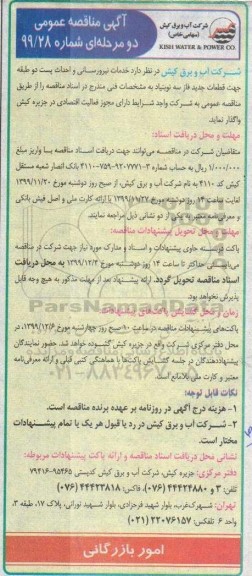 شرکت آب و برق کیش
(سهامی خاص)
KISH WATER & POWER CO.
آگهی مناقصه عمومی
دو مرحله‌ای شماره ۹۹/۲۸
شرکت آب و برق کیش در نظر دارد خدمات نیرورسانی و احداث پست دو طبقه
جهت قطعات جدید فاز سه نوبنیاد به مشخصات فنی مندرج در اسناد مناقصه را از طریق
مناقصه عمومی به شرکت واجد شرایط دارای مجوز فعالیت اقتصادی در جزیره کیش
واگذار نماید.
مهلت و محل دریافت اسناد:
متقاضیان شرکت در مناقصه می‌توانند جهت دریافت اسناد مناقصه با واریز مبلغ
۱/۰۰۰/۰۰۰ ریال به حساب شماره بانک انصار شعبه مستقل
کیش کد ۴۱۱۰ به نام شرکت آب و برق کیش، از صبح روز دوشنبه مورخ ۱۳۹۹/۱۱/۲۰
لغایت ساعت ۱۴ روز با ارائه کارت ملی و اصل فیش بانکی
و معرفی‌نامه معتبر به یکی از دو نشانی ذیل مراجعه نمایند.
مهلت و محل تحویل پیشنهادات مناقصه:
پاکت دربسته حاوی پیشنهادات و اسناد و مدارک مورد نیاز جهت شرکت در مناقصه
می‌بایستی حداکثر تا ساعت ۱۴ روز دوشنبه مورخ به محل دریافت
اسناد مناقصه تحویل گردد. ارائه پیشنهاد بعد از مهلت مذکور به هیچ وجه قابل
پذیرش نخواهد بود.
زمان و محل گشایش پاکت‌های پیشنهادات:
پاکت‌های پیشنهادات مناقصه در ساعت ۹ صبح روز چهارشنبه مورخ در
محل دفتر مرکزی شرکت واقع در جزیره کیش گشوده خواهد شد. حضور نمایندگان
پیشنهاددهندگان در جلسه گشایش پاکت‌ها با هماهنگی کتبی قبلی و ارائه معرفی‌نامه
معتبر و کارت ملی بلامانع است.
ParsNamadData
۰۲۱-۸۸۳۴۹۶۷۰-۵
نکات قابل توجه:
۱- هزینه درج آگهی در روزنامه بر عهده برنده مناقصه است.
۲- شرکت آب و برق کیش در رد یا قبول هر یک یا تمام پیشنهادات
مختار است.
نشانی محل دریافت اسناد مناقصه و ارائه پاکت پیشنهادات مربوطه:
دفتر مرکزی: جزیره کیش، شرکت آب و برق کیش کدپستی ۹۵۴۶۵-۷۹۴۱۶
تلفن: ۳ و ۴۴۴۲۴۸۸۰ (۰۷۶)، فاکس: ۴۴۴۲۳۸۱۸ (۰۷۶)
تهران: شهرک غرب، بلوار شهید فرحزادی، بلوار شهید نورانی، پلاک ۱۷، طبقه ۳،
واحد ۶ تلفکس: ۲۲۰۷۶۱۵۷ (۰۲۱)
امور بازرگانی